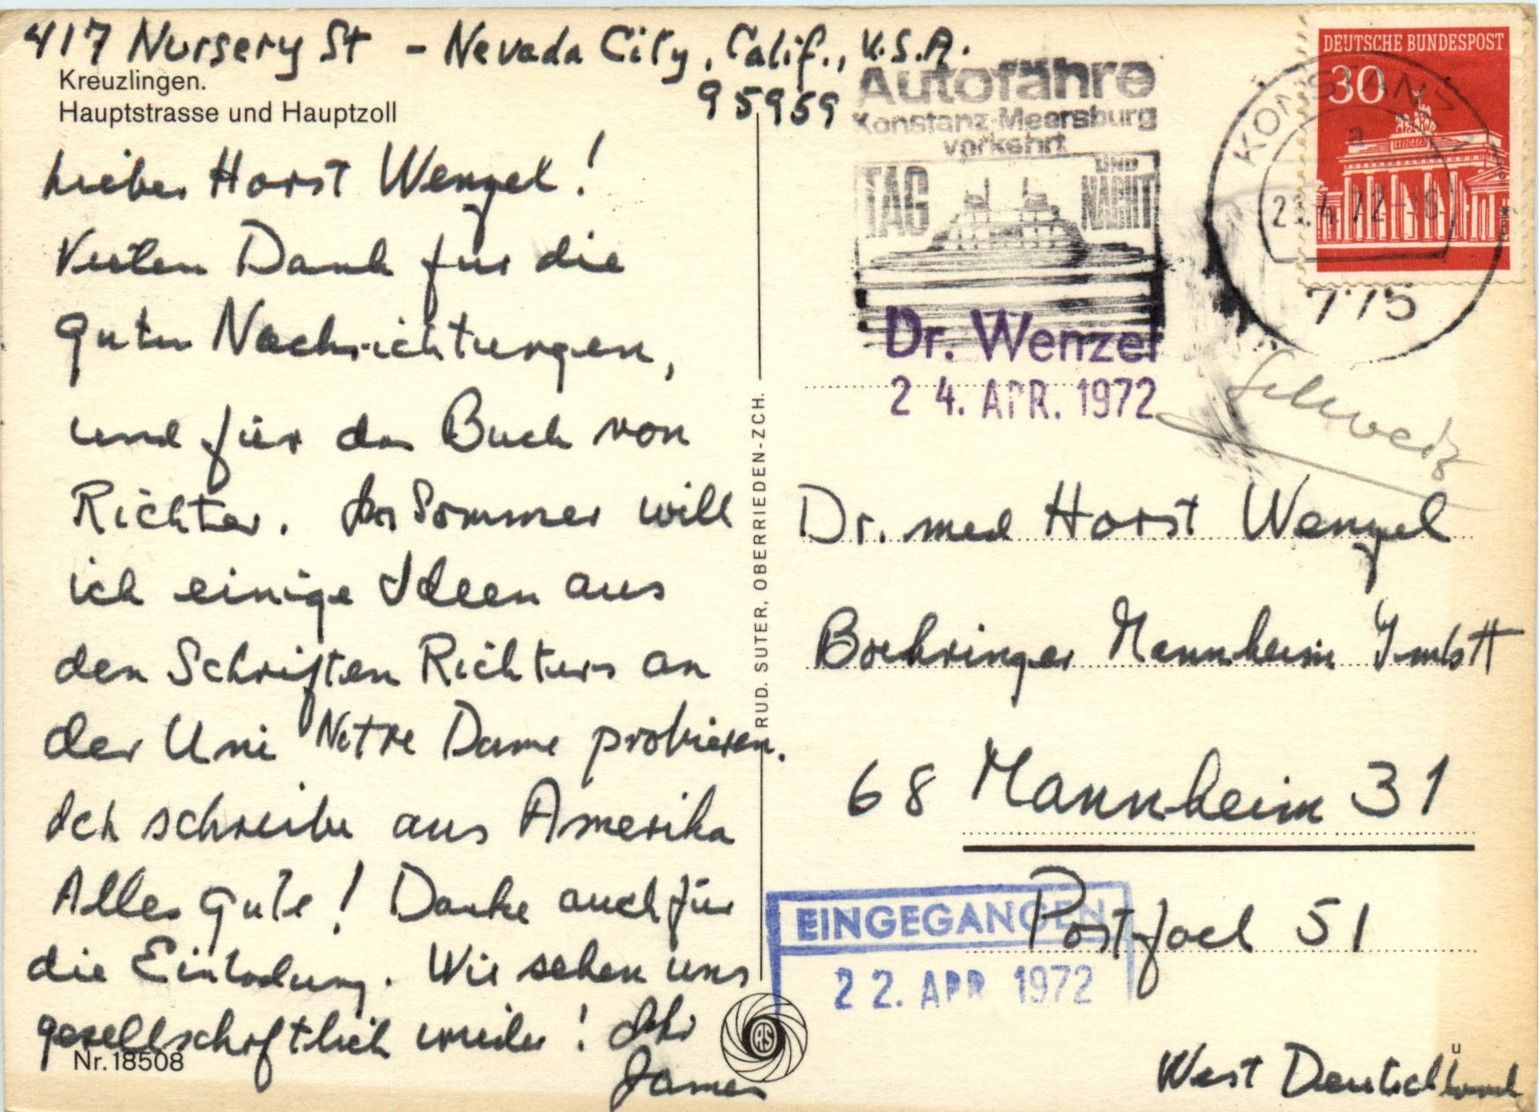 417 Nursery St - Nevada City, Calif., U.S.A.
95959
Kreuzlingen.
Hauptstrasse und Hauptzoll
Lieber Horst Wenzel!
Vielen Dank für die
guten Nachrichtungen,
und für das Buch von
Richter. Im Sommer will
ich einige Ideen aus
den Schriften Richters an
der Uni Notre Dame probieren.
Ich schreibe aus Amerika
Alles Gute! Danke auch für
die Einladung. Wir sehen uns
gesellschaftlich wieder! Ihr
James
Nr. 18508
RUD. SUTER, OBERRIEDEN-ZCH.
RS
Autofähre
Konstanz-Meersburg
verkehrt
TAG UND NACHT
DEUTSCHE BUNDESPOST
30
KONSTANZ
a
21.4.72-16
775
Dr. Wenzel
24. APR. 1972
Schweiz
Dr. med Horst Wenzel
Boehringer Mannheim GmbH
68 Mannheim 31
Postfach 51
EINGEGANGEN
22. APR 1972
West Deutschland
ü